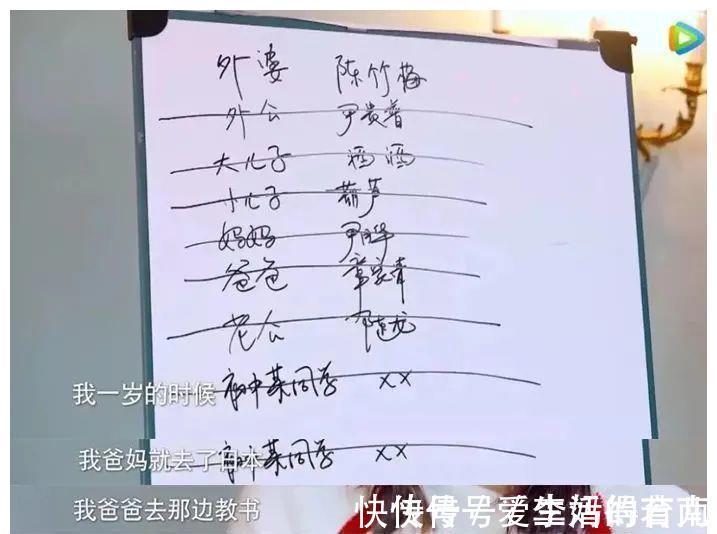 外婆 陈竹梅
外公 尹贵普
大儿子 酒酒
小儿子 葫芦
妈妈 尹
爸爸 章
老公 陈龙
高中某同学 xx
我一岁的时候
高中某同学 xx
我爸妈就去了日本
我爸爸去那边教书